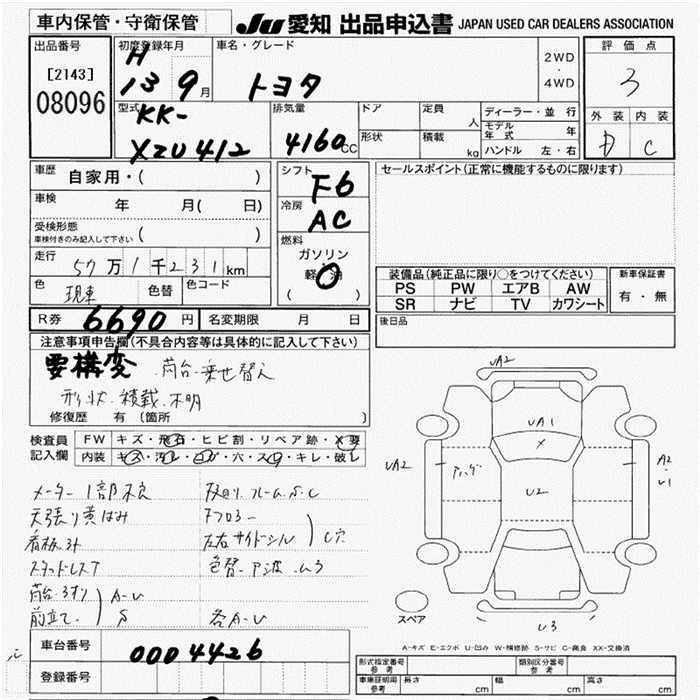 車内保管・守衛保管
JU 愛知 出品申込書 JAPAN USED CAR DEALERS ASSOCIATION
出品番号
[2143]
08096
初度登録年月
H
13 9月
車名・グレード
トヨタ
2WD
・
4WD
評価点
3
外装 内装
D C
型式
KK-
XZU412
排気量
4160cc
ドア
定員 人
形状
積載 kg
ディーラー・並行
モデル年式 年
ハンドル 左・右
車歴
自家用・( )
車検
年 月( 日)
受検形態
車検付きのみ記入して下さい ( )
走行
57万1千231km
色
現車
色替
色コード
シフト
F6
冷房
AC
燃料
ガソリン
軽油
( )
セールスポイント(正常に機能するものに限ります)
装備品(純正品に限り○をつけてください)
PS PW エアB AW
SR ナビ TV カワシート
新車保証書
有・無
R券 6690円
名変期限 月 日
後日品
注意事項申告欄(不具合内容等は具体的に記入して下さい)
要構変 荷台乗せ替え
形状・積載不明
修復歴 有(箇所 )
検査員
記入欄
FW キズ・飛石・ヒビ割・リペア跡・X要
内装 キズ・汚レ・コゲ・穴・スレ・キレ・破レ
メーター1部不良
天張り黄ばみ
看板3オ
スタッドレスT
荷台・3オリ
前立て
A-U
S
下回り、フレームS.C
Fフロアー
左右サイドシル
C穴
色替
各A-U
UA2
UA1
X
UA2
U2
A2
U1
U3
スペア
A-キズ E-エクボ U-凹み W-補修跡 S-サビ C-腐食 XX-交換済
車台番号
0004426
登録番号
形式指定番号
参考
類別区分番号
参考
車庫証明用
参考
長さ cm
幅 cm
高さ cm